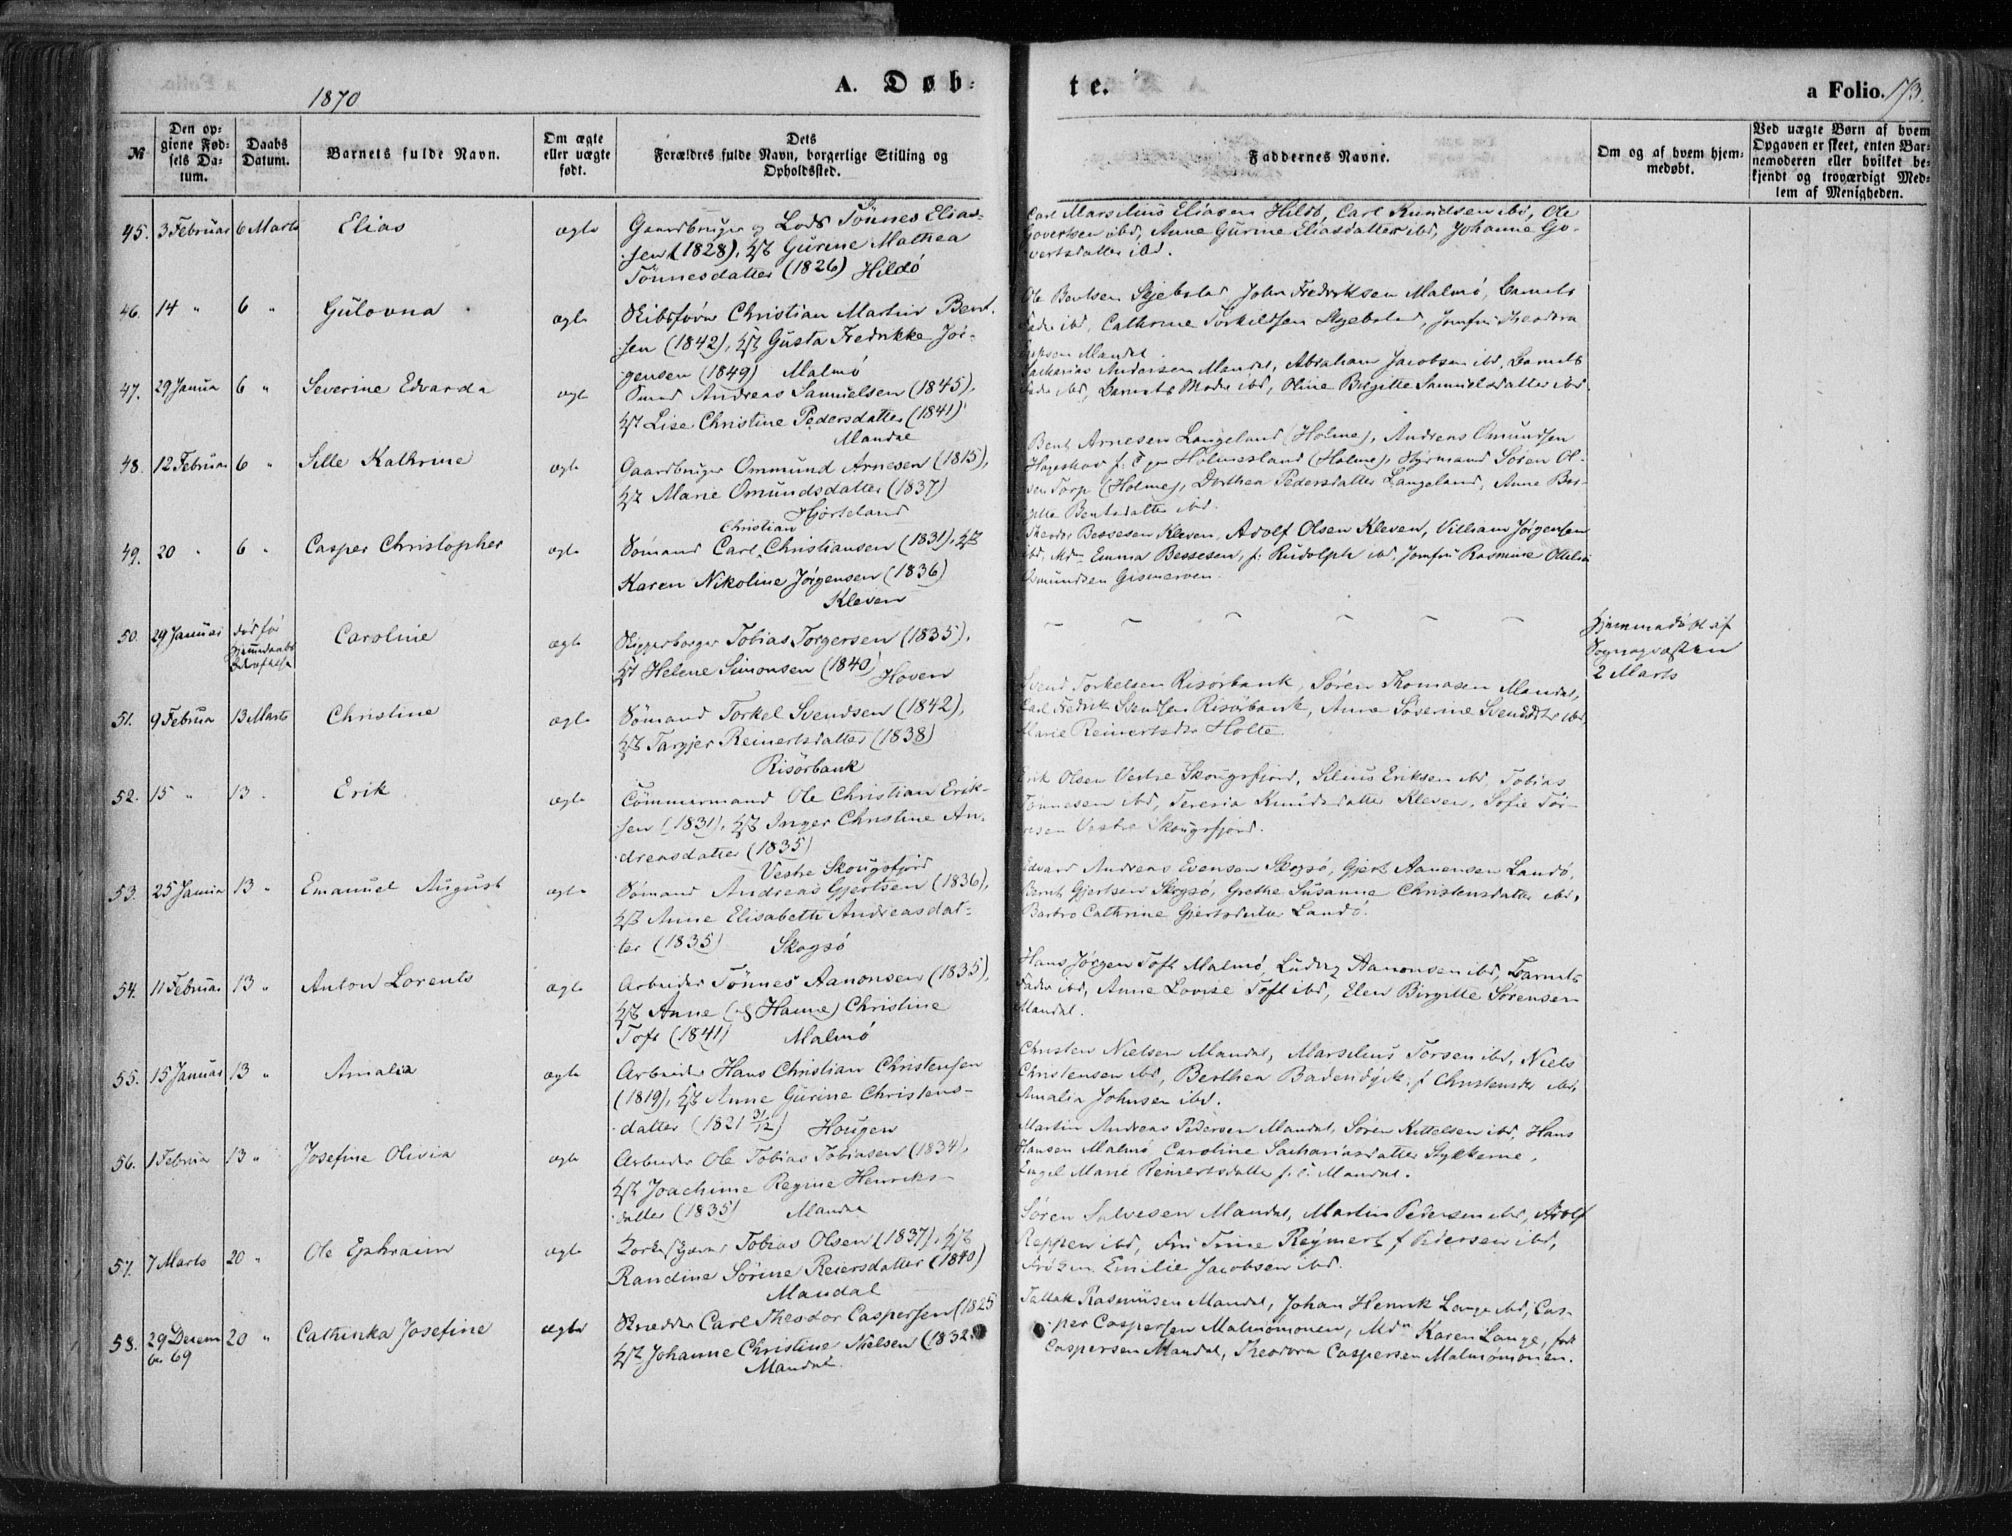 1870
A. Døb-
te.
a Folio. 173.
№
Den op-
givne Fød-
sels Da-
tum.
Daabs
Datum.
Barnets fulde Navn.
Om ægte
eller uægte
født.
Dets
Forældres fulde Navn, borgerlige Stilling og
Opholdssted.
Faddernes Navne.
Om og af hvem hjem-
medøbt.
Ved uægte Børn af hvem
Opgaven er skeet, enten Bar-
nemoderen eller hvilket be-
kjendt og troværdigt Med-
lem af Menigheden.
45. 3 Februar 6 Marts Elias ægte Gaardbruger og Lods Tönnes Elias-
sen (1828), Gurine Mathea
Tönnesdatter (1826) Hildö
Carl Marselius Eliasen Hildö, Carl Knudsen ibd, Ole
Govertsen ibd, Anne Gurine Eliasdatter ibd, Johanne Go-
vertsdatter ibd.
46. 14 " 6 " Gulovna ægte Skibsfører Christian Martin Bent-
sen (1842), Gusta Fredrikke Jör-
gensen (1849) Malmö
Ole Bentsen Skjebstad John Fredriksen Malmö, Barnets
Fader ibd, Cathrine Torkildsen Skjebstad, Jomfru Theodora
Jepsen Mandal.
47. 29 Janua 6 " Severine Edvarda ægte Smed Andreas Samuelsen (1845),
Lise Christine Pedersdatter (1841)
Mandal
Zacharias Andersen Mandal, Abraham Jacobsen ibd, Barnets
Fader ibd, Barnets Moder ibd, Oline Birgitte Samuelsdatter ibd.
48. 12 Februar 6 " Sille Kathrine ægte Gaardbruger Ommund Arnesen (1815),
Marie Omundsdatter (1837)
Hjorteland
Bent Arnesen Langeland (Holme), Andreas Omundsen
Hageskov Holmesland (Holme), Styrmand Sören Ol-
sen Torp (Holme), Dorthea Pedersdatter Langeland, Anne Bir-
gitte Bentsdatter ibd.
49. 20 " 6 " Casper Christopher ægte Sömand Carl Christian Christiansen (1831),
Karen Nikoline Jörgensen (1836)
Kleven
Theodor Bessesen Kleven, Adolf Olsen Kleven, Villiam Jörgensen
ibd, Mdm Emma Bessesen, f: Rudolph ibd, Jomfru Rasmine Ottilia
Omundsen Gismerøen.
50. 29 Januar död för
Hjemmedaabs
Bekræftelse Caroline ægte Skipperborger Tobias Torgersen (1835),
Helene Simonsen (1840) Hoven
Hjemmedöbt af
Sognepræsten
2 Marts
51. 9 Februa 13 Marts Christine ægte Sömand Torkel Svendsen (1842),
Targjer Reinertsdatter (1838)
Risörbank
Svend Torkelsen Risörbank, Sören Thomasen Mandal,
Carl Fredrik Svendsen Risörbank, Anne Söverine Svendsdtr ibd
Marie Reinertsdtr Holte
52. 15 " 13 " Erik ægte Tömmermand Ole Christian Erik-
sen (1831), Inger Christine An-
dreasdatter (1835)
Vestre Skougsfjord
Erik Olsen Vestre Skougsfjord, Silius Eriksen ibd Tobias
Tönnesen ibd, Teresia Knudsdatter Kleven, Sofie Tör-
resen Vestre Skougsfjord.
53. 25 Janua 13 " Emanuel August ægte Sömand Andreas Gjertsen (1836),
Anne Elisabeth Andreasdat-
ter (1835) Skogsö
Edvard Andreas Evensen Skogsö, Gjert Aanensen Landö,
Bernt Gjertsen Skogsö, Grethe Susanne Christensdatter ibd,
Barbro Cathrine Gjertsdatter Landö.
54. 11 Februar 13 " Anton Lorents ægte Arbeider Tönnes Aanonsen (1835),
Anne (og Hanne) Christine
Toft (1841) Malmö
Hans Jörgen Toft Malmö, Ludvig Aanonsen ibd, Barnets
Fader ibd, Anne Lovise Toft ibd, Elen Birgitte Sörensen
Mandal.
55. 15 Januar 13 " Amalia ægte Arbeider Hans Christian Christensen
(1819), Anne Gurine Christens-
datter (1821 31/12) Hougen
Christen Nielsen Mandal, Marselius Torsen ibd, Niels
Christensen ibd, Berthea Badendyck f Christensdtr ibd,
Amalia Johnsen ibd.
56. 1 Februa 13 " Josefine Olivia ægte Arbeider Ole Tobias Tobiasen (1834),
Joachime Regine Henriks-
datter (1835) Mandal
Martin Andreas Pedersen Mandal, Sören Kittelsen ibd, Hans
Hansen Malmö Caroline Sachariasdatter Stykkerne,
Engel Marie Reinertsdatter Mandal.
57. 7 Marts 20 " Ole Ephraim ægte Tobias Olsen (1837),
Randine Sörine Reiersdatter (1840)
Mandal
Sören Salvesen Mandal, Martin Pedersen ibd, Adolf
Reppen ibd, Fru Trine Reymert f Pedersen ibd,
Fröken Emilie Jacobsen ibd.
58. 29 Decem
ber 69 20 " Cathinka Josefine ægte Skrædder Carl Theodor Caspersen (1825
Johanne Christine Nielsen (1832)
Mandal.
Tallak Rasmusen Mandal, Johan Henrik Lange ibd, Cas-
per Caspersen Malmömonen, Mdm Karen Lange, født
Caspersen Mandal, Theodora Caspersen Malmömonen.